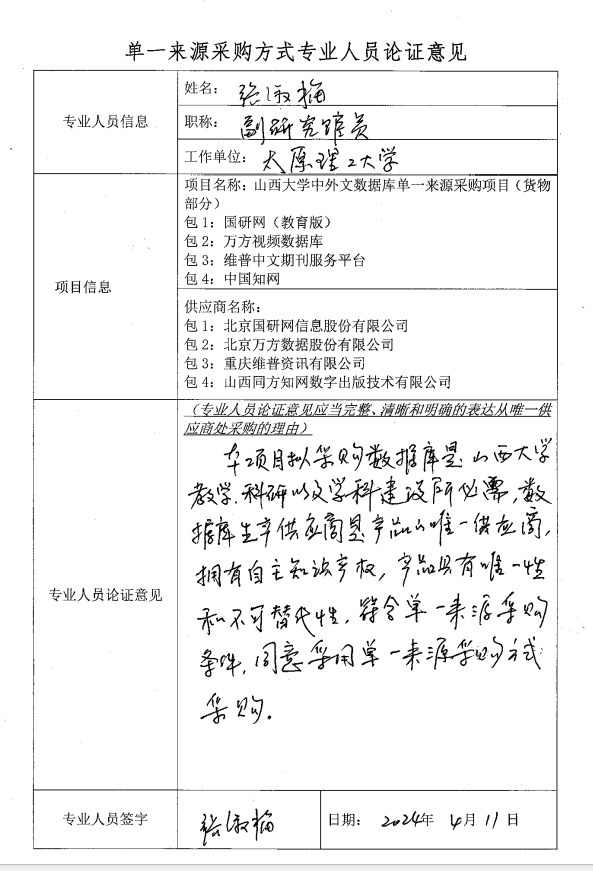 单一来源采购方式专业人员论证意见
专业人员信息
姓名：张淑梅
职称：副研究馆员
工作单位：太原理工大学
项目信息
项目名称：山西大学中外文数据库单一来源采购项目（货物
部分）
包 1：国研网（教育版）
包 2：万方视频数据库
包 3：维普中文期刊服务平台
包 4：中国知网
供应商名称：
包 1：北京国研网信息股份有限公司
包 2：北京万方数据股份有限公司
包 3：重庆维普资讯有限公司
包 4：山西同方知网数字出版技术有限公司
专业人员论证意见
（专业人员论证意见应当完整、清晰和明确的表达从唯一供
应商处采购的理由）
本项目拟采购数据库是山西大学
教学、科研以及学科建设所必需，数
据库生产供应商是产品的唯一供应商，
拥有自主知识产权，产品具有唯一性
和不可替代性，符合单一来源采购
条件，同意采用单一来源采购方式
采购。
专业人员签字 张淑梅 日期： 2024年 4月 11日